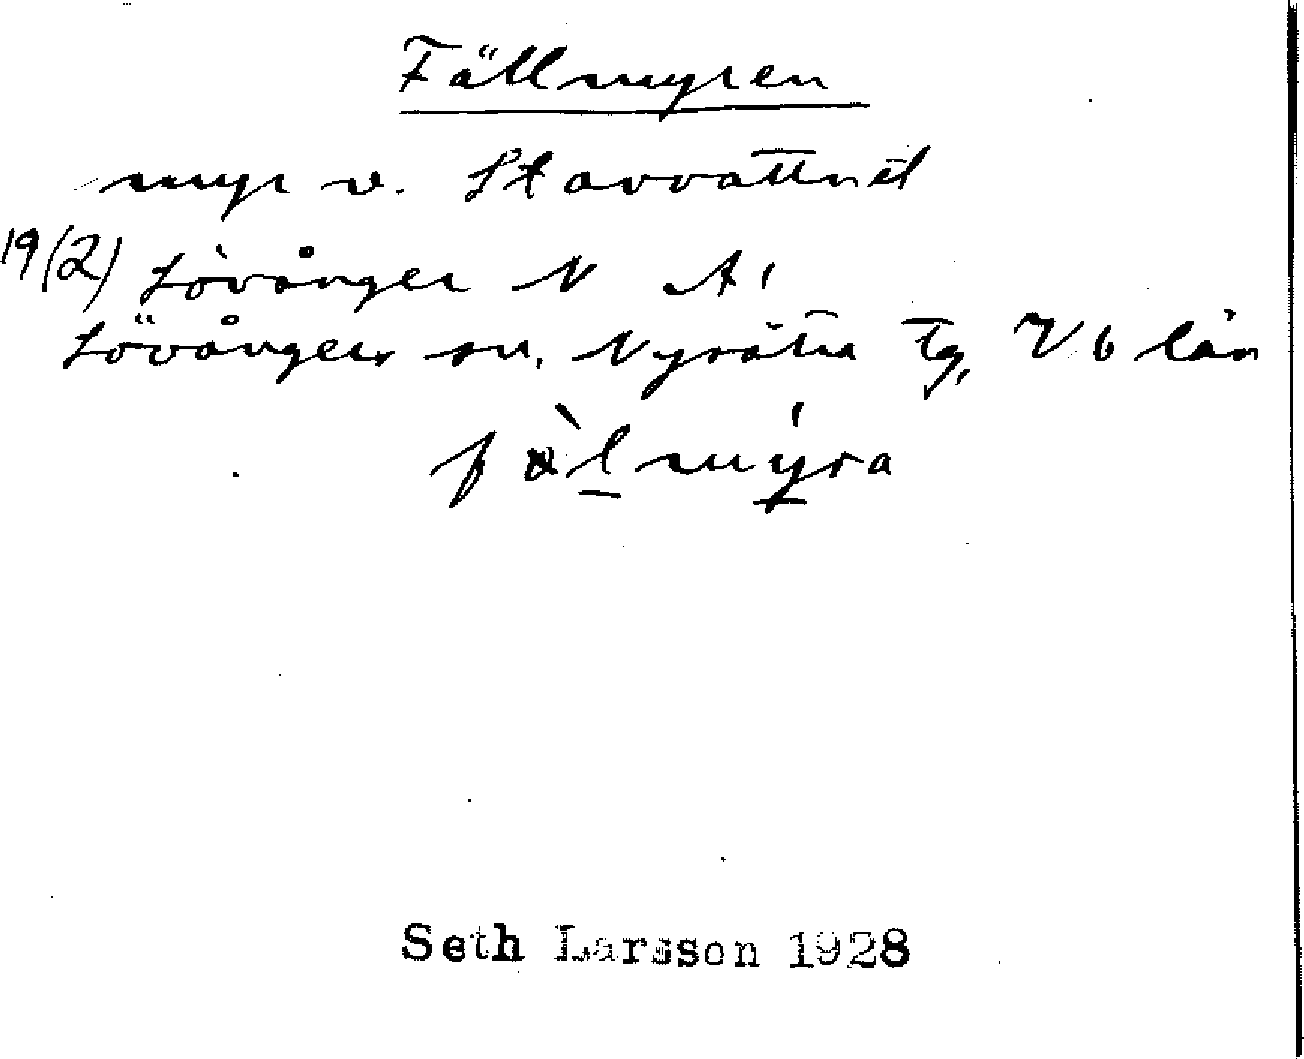 Fällmyren
myr v. Stavvattnet
19(2) Lövånger N A1
Lövångers sn. Nysätra Tg, Vb län
fälmyra
Seth Larsson 1928